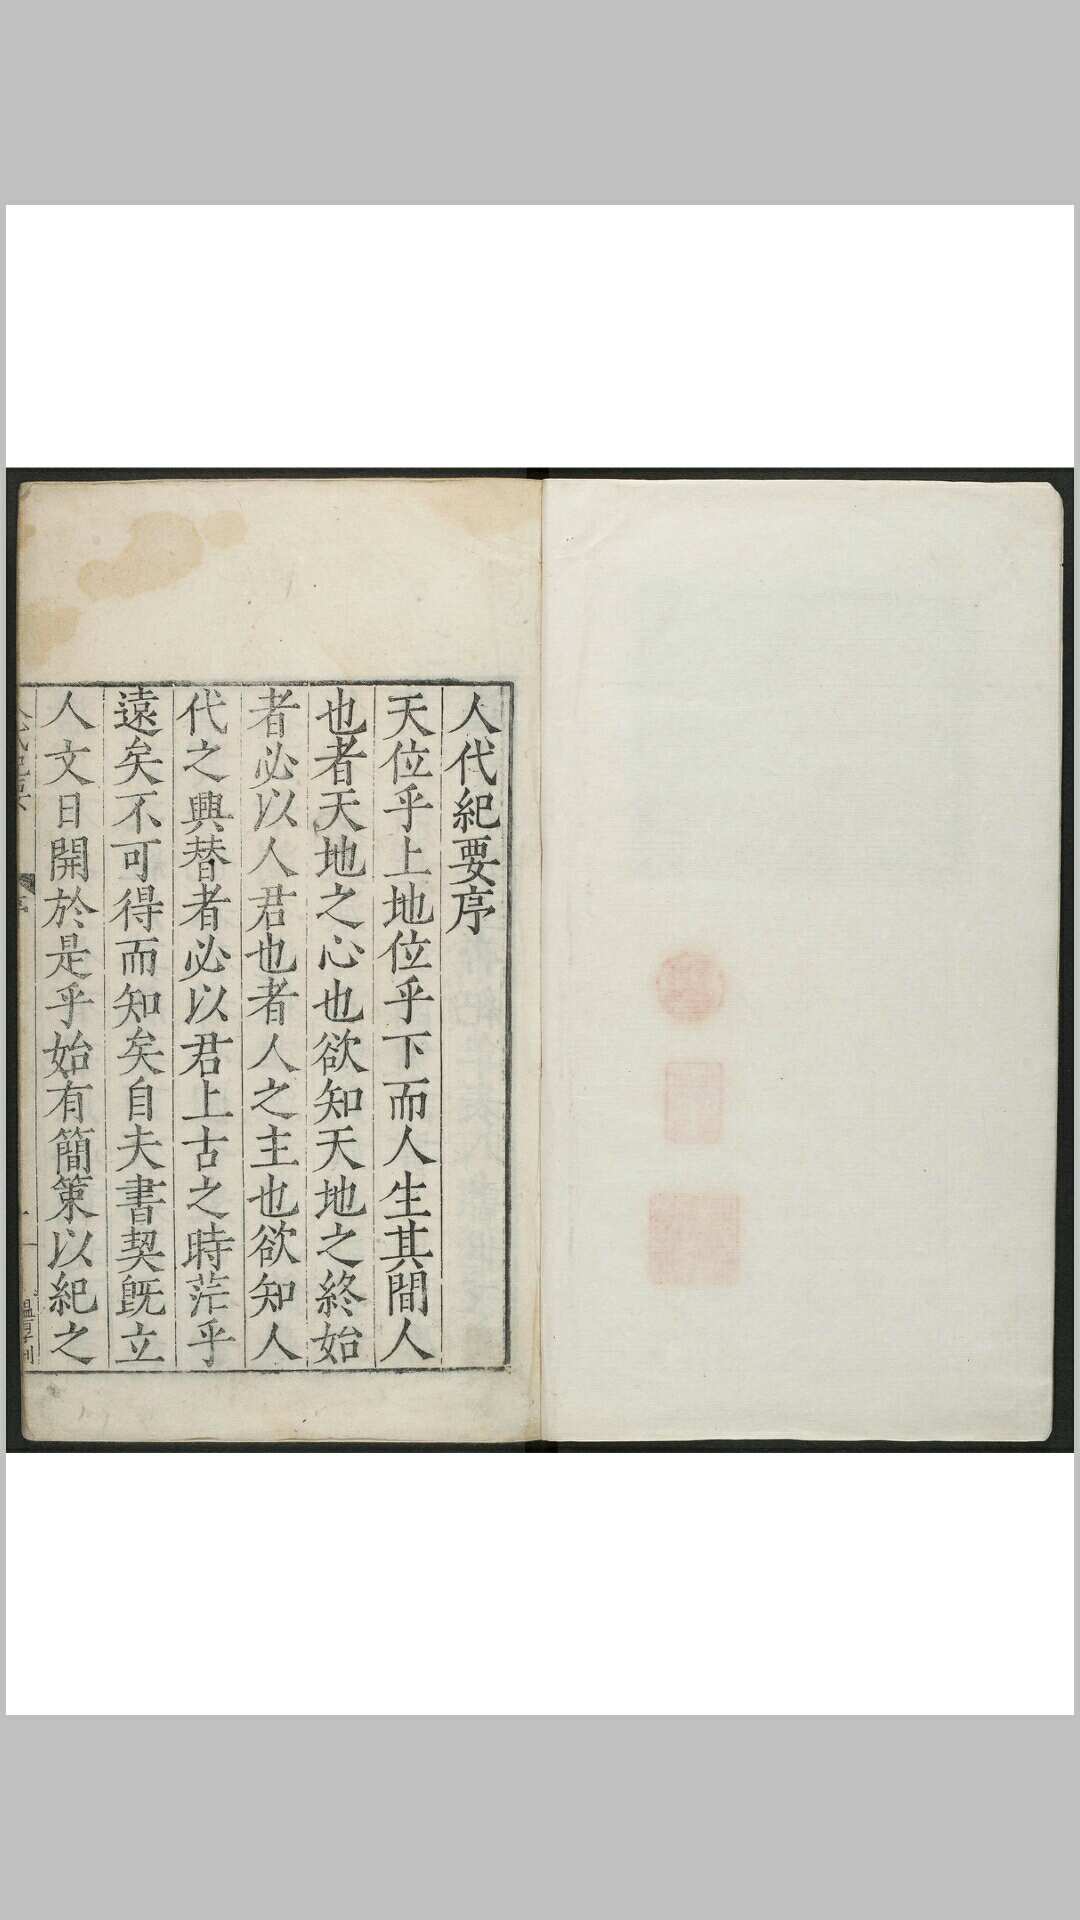 人代紀要序
天位乎上地位乎下而人生其間人
也者天地之心也欲知天地之終始
者必以人君也者人之主也欲知人
代之興替者必以君上古之時茫乎
遠矣不可得而知矣自夫書契既立
人文日開於是乎始有簡策以紀之